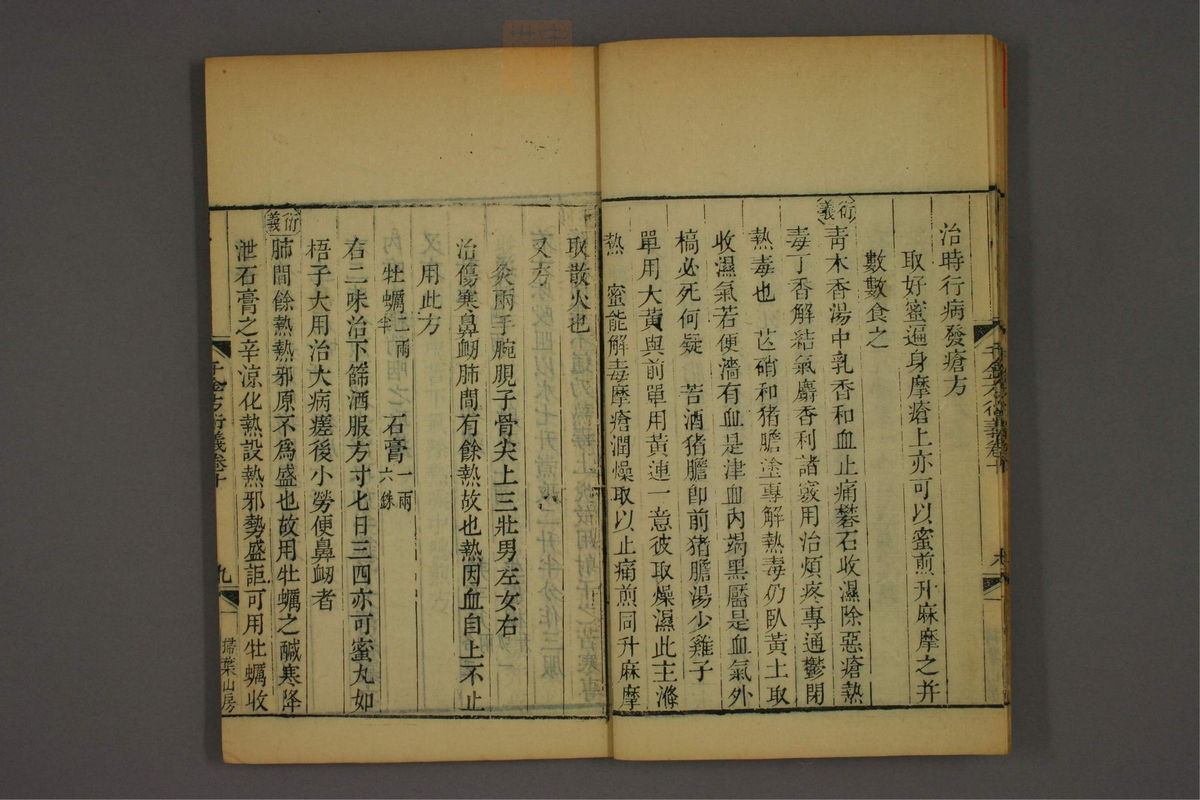 治時行病發瘡方
取好蜜遍身摩瘡上亦可以蜜煎升麻摩之并
數數食之
衍義
青木香湯中乳香和血止痛礬石收濕除惡瘡熱
毒丁香解結氣麝香利諸竅用治煩疼專通鬱閉
熱毒也 芒硝和猪膽塗專解熱毒仍臥黃土取
收濕氣若便濇有血是津血內竭黑靨是血氣外
槁必死何疑 苦酒猪膽卽前猪膽湯少雞子
單用大黃與前單用黃連一意彼取燥濕此主滌
熱 蜜能解毒摩瘡潤燥取以止痛煎同升麻摩
取散火也
又方
灸兩手腕腉子骨尖上三壯男左女右
治傷寒鼻衂肺間有餘熱故也熱因血自上不止
用此方
牡蠣二兩半 石膏一兩六銖
右二味治下篩酒服方寸七日三四亦可蜜丸如
梧子大用治大病瘥後小勞便鼻衂者
衍義
肺間餘熱熱邪原不爲盛也故用牡蠣之鹹寒降
泄石膏之辛涼化熱設熱邪勢盛詎可用牡蠣收
千金方衍義卷十
九
掃葉山房